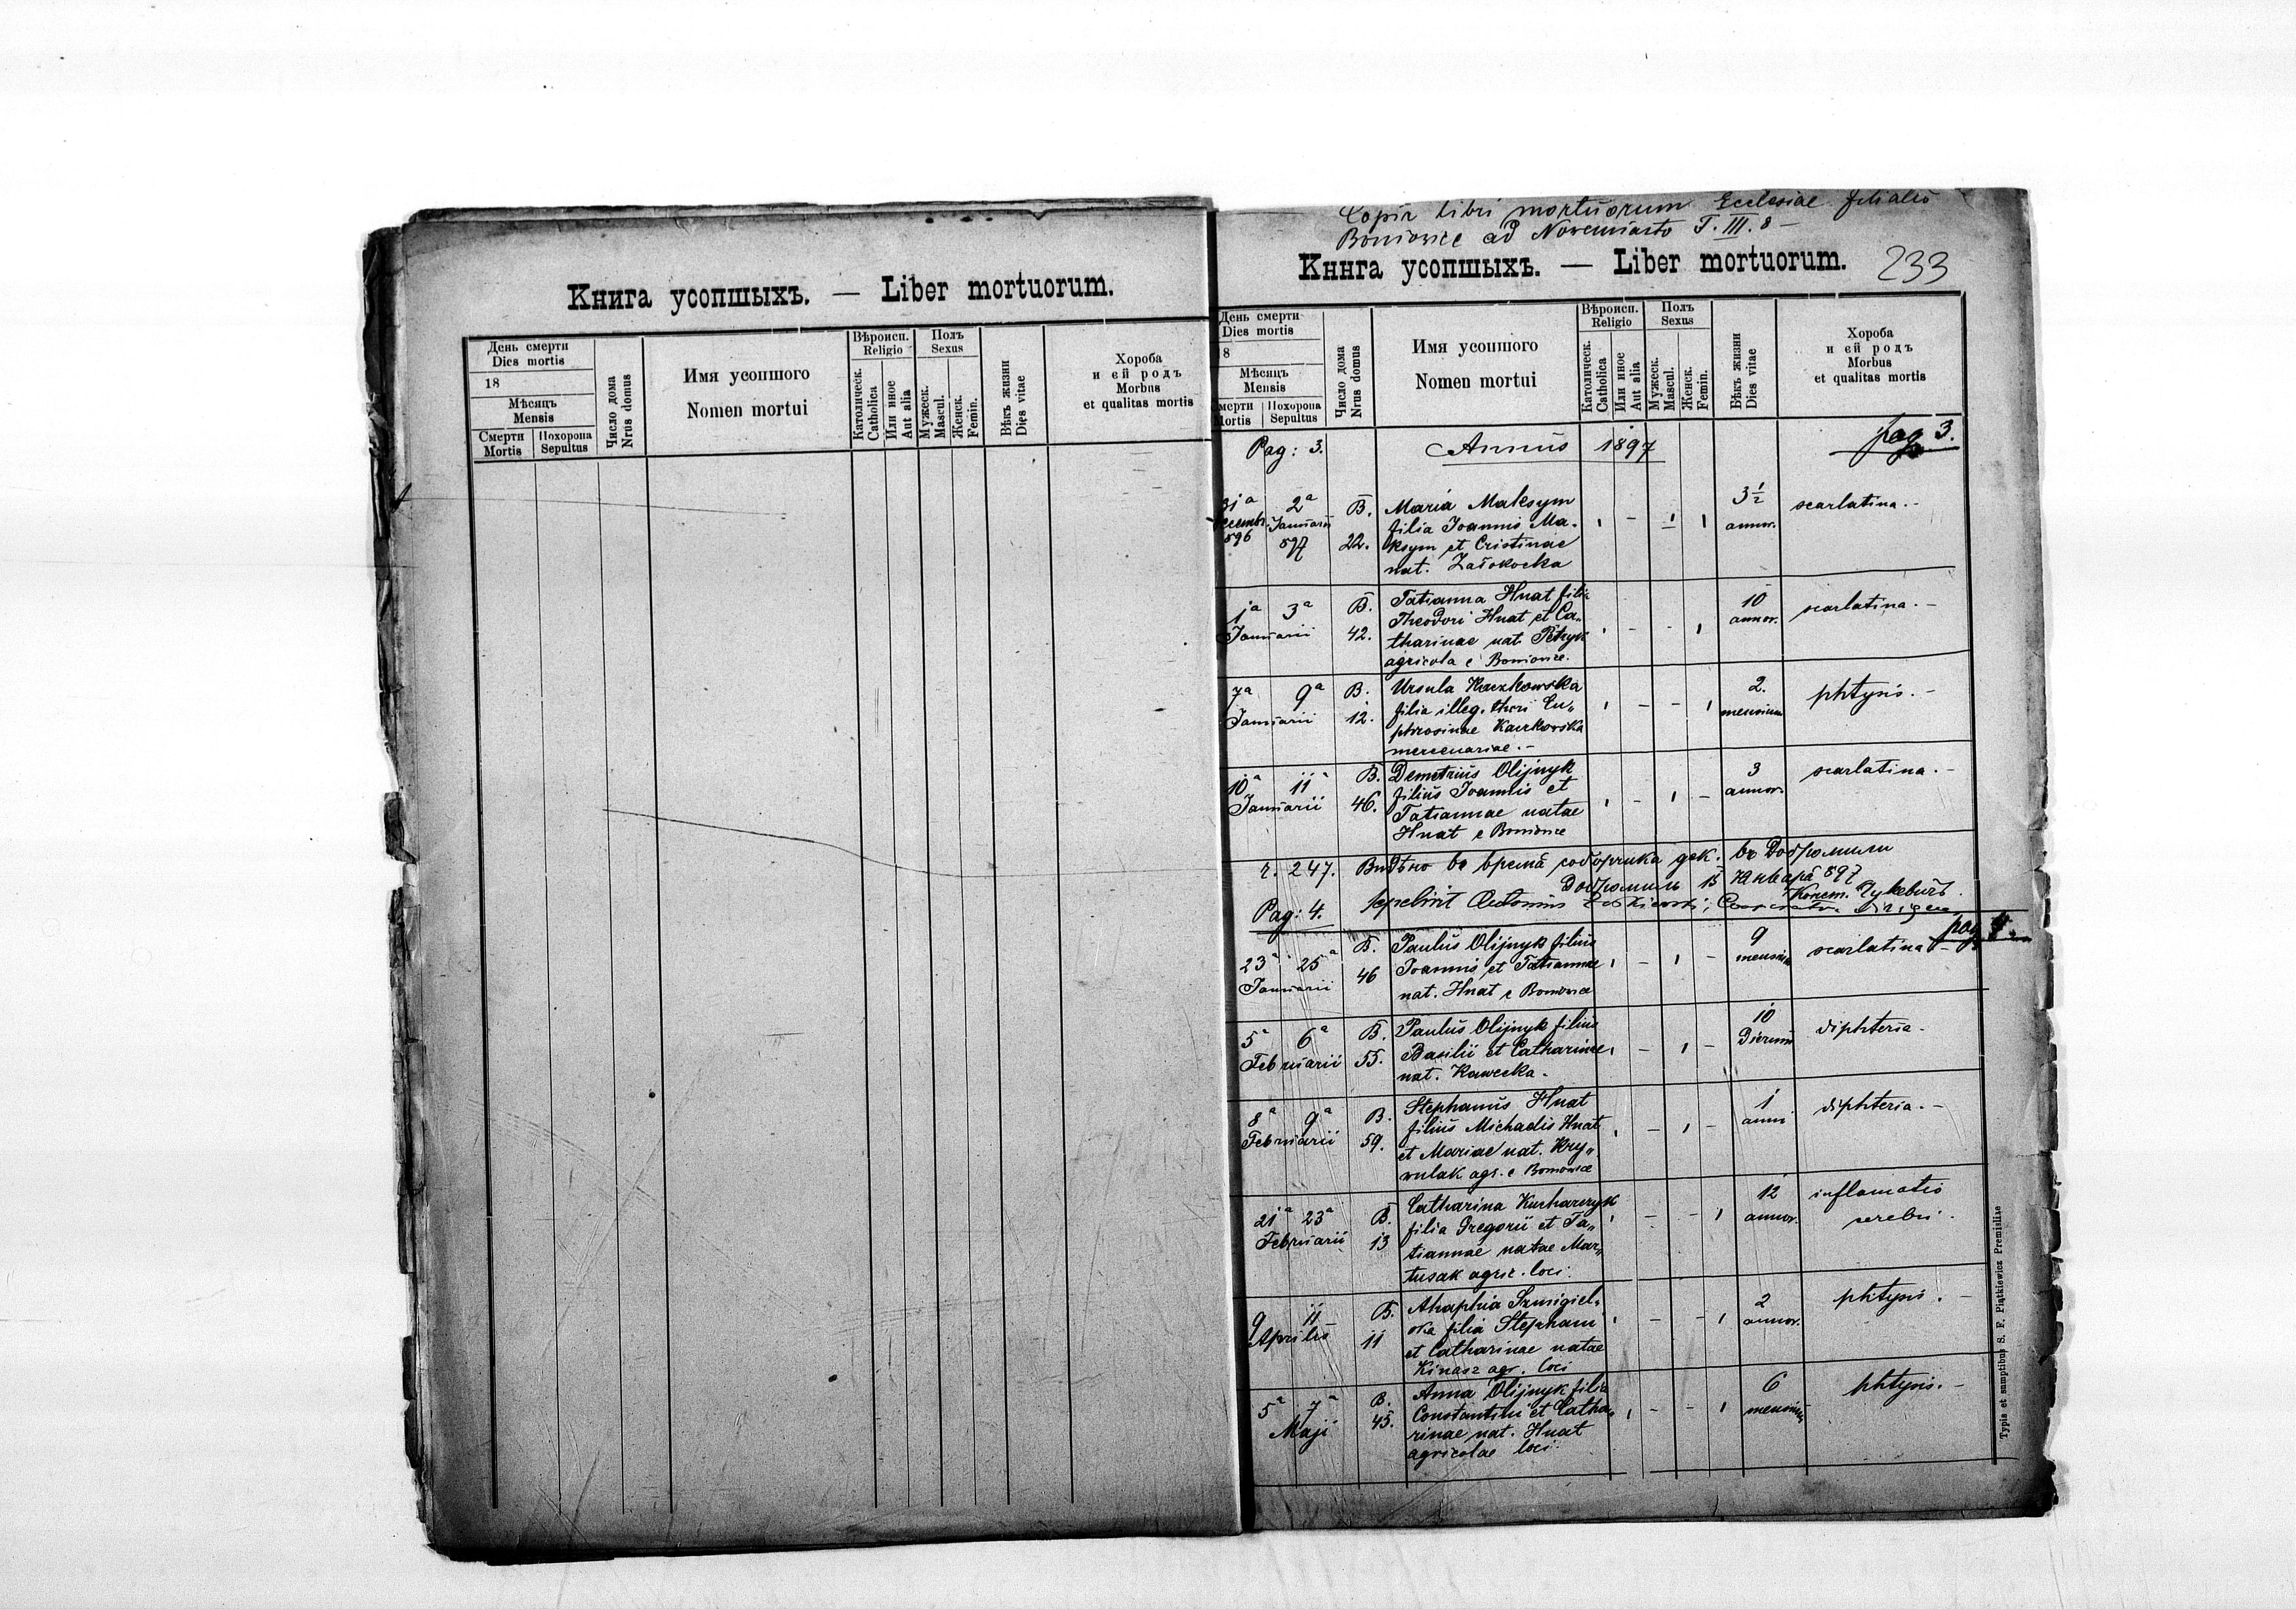 Книга усопшыхъ. — Liber mortuorum.
День смерти
Dies mortis
18
Мѣсяцъ
Mensis
Смерти
Mortis
Похорона
Sepultus
Число дома
Nrus domus
Имя усопшого
Nomen mortui
Вѣроисп.
Religio
Католическ.
Catholica
Или иное
Aut alia
Полъ
Sexus
Мужеск.
Mascul.
Женск.
Femin.
Вѣкъ жизни
Dies vitae
Хороба
и єй родъ
Morbus
et qualitas mortis
Copia libri mortuorum Ecclesiae filialis
Boniowice ad Nowemiasto T. III. 8 -
Книга усопшыхъ. — Liber mortuorum. 233
День смерти
Dies mortis
18
Мѣсяцъ
Mensis
Смерти
Mortis
Похорона
Sepultus
Число дома
Nrus domus
Имя усопшого
Nomen mortui
Вѣроисп.
Religio
Католическ.
Catholica
Или иное
Aut alia
Полъ
Sexus
Мужеск.
Mascul.
Женск.
Femin.
Вѣкъ жизни
Dies vitae
Хороба
и єй родъ
Morbus
et qualitas mortis
Pag: 3. Annus 1897 pag 3.
31a 2a B. Maria Maksym 3 1/2 scarlatina.-
Decembr. Januarii filia Joannis Ma- annor.
896 897 22. ksym et Cristinae
nat. Załokocka
1a 3a B. Tatianna Hnat filia 10 scarlatina.-
Januarii 42. Theodori Hnat et Ca- annor.
tharinae nat. Petryk
agricola e Boniowice.
7a 9a B. Ursula Kaczkowska 2. phtysis.-
Januarii 12. filia illeg. thori Eu- mensium
phrosinae Kaczkowska
mercenariae.-
10a 11a B. Demetrius Olijnyk 3 scarlatina.-
Januarii 46. filius Joannis et annor.
Tatiannae natae
Hnat e Boniowice
ч. 247. Видѣно во время соборчика дек. въ Добромили
Добромиль 13 Января 897
Pag: 4. sepelivit Antonius
pag 4.
23a 25a B. Paulus Olijnyk filius 9 scarlatina-
Januarii 46 Joannis et Tatiannae mensium
nat. Hnat e Boniowice
5a 6a B. Paulus Olijnyk filius 10 diphteria-
Februarii 55. Basilii et Catharinae dierum
nat. Kawecka.
8a 9a B. Stephanus Hnat 1 diphteria.-
Februarii 59. filius Michaelis Hnat anni
et Mariae nat. Kry-
wulak agr. e Boniowice
21a 23a B. Catharina Kucharczyk 12 inflamatio
Februarii 13 filia Gregorii et Ta- annor. cerebri.
tiannae natae Mar-
tusak agric. loci.
9 11 B. Ahaphia Szmigiel- 2 phtysis.-
Aprilis 11 ska filia Stephani annor.
et Catharinae natae
Kinasz agr. loci
5a 7a B. Anna Olijnyk filia 6 phtysis.-
Maji 45. Constantini et Catha- mensium
rinae nat. Hnat
agricolae loci
Typis et sumptibus S. F. Piątkiewicz Premisliae